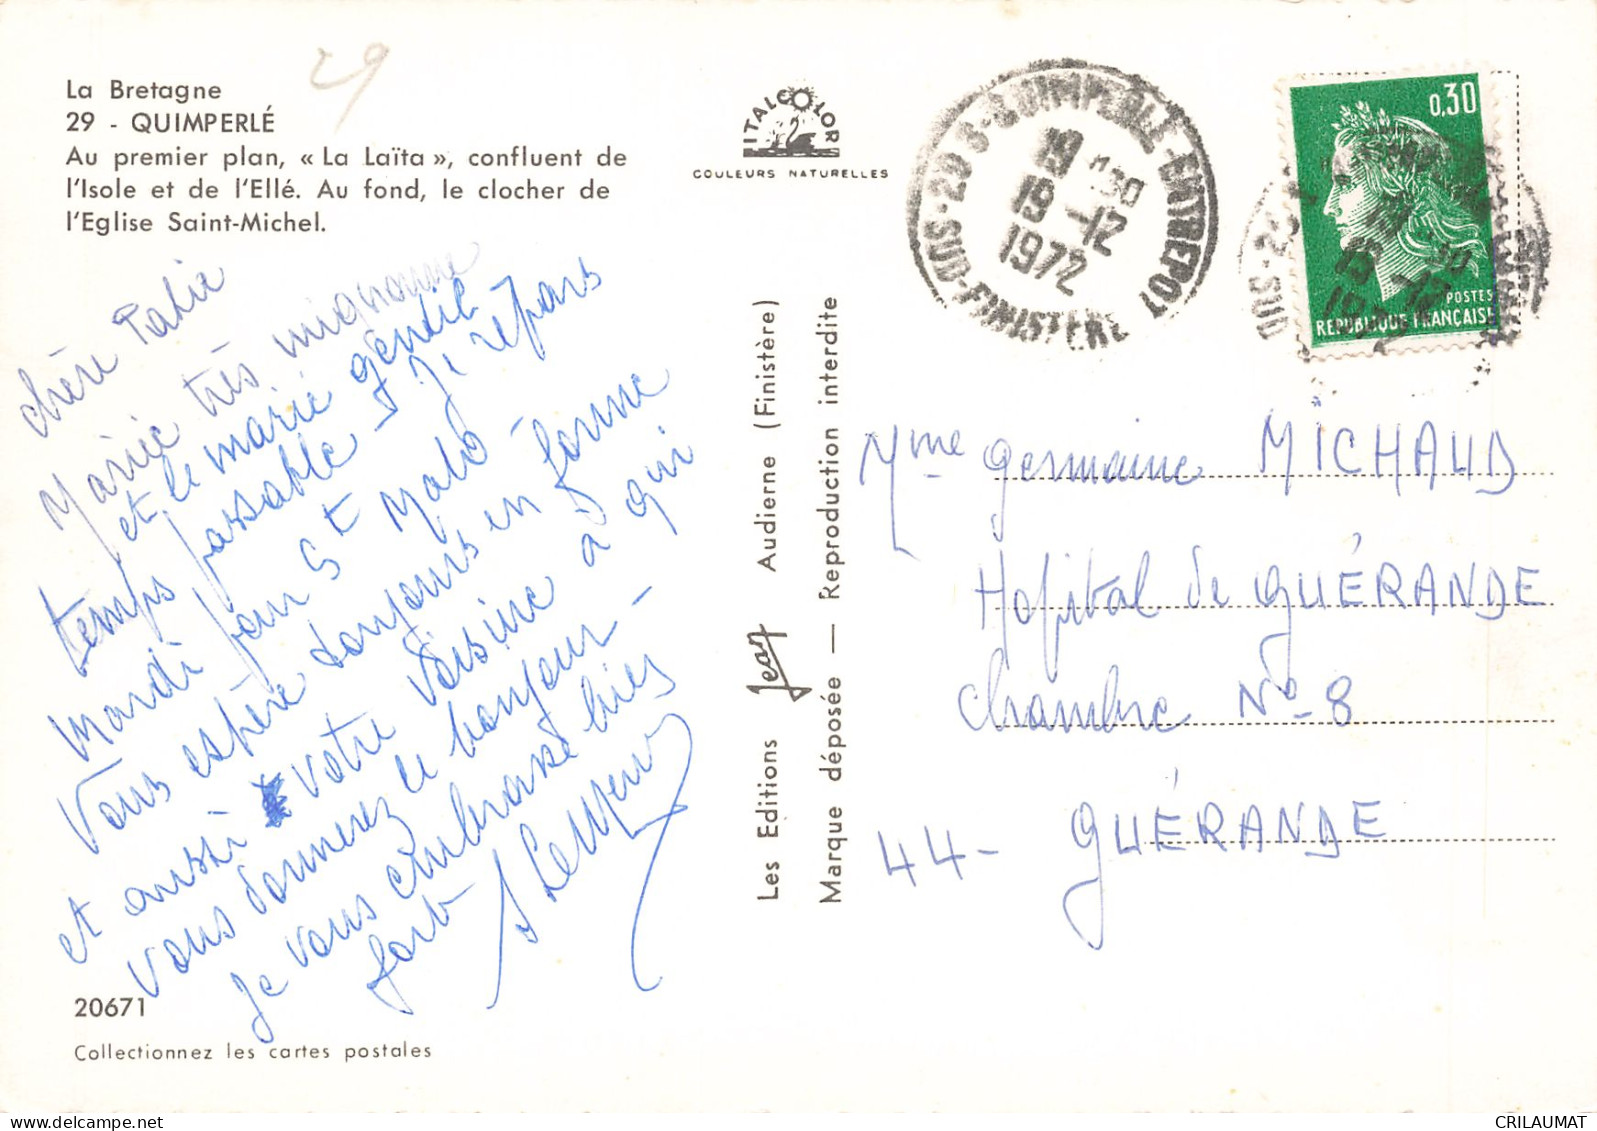 29
La Bretagne
29 - QUIMPERLÉ
Au premier plan, « La Laïta », confluent de
l'Isole et de l'Ellé. Au fond, le clocher de
l'Eglise Saint-Michel.
chère
Mariée très mignonne
et le marié gentil
temps passable - Je repars
mardi pour St Malo -
Vous espère toujours en forme
et aussi votre voisine à qui
vous donnerez le bonjour -
Je vous embrasse bien
fort
20671
Collectionnez les cartes postales
ITALCOLOR
COULEURS NATURELLES
Les Editions Jean Audierne (Finistère)
Marque déposée — Reproduction interdite
QUIMPERLÉ-ENTREPOT
SUD-FINISTÈRE
19 H30
19 -12
1972
0,30
POSTES
REPUBLIQUE FRANÇAISE
Mme germaine MICHAUD
Hopital de GUÉRANDE
Chambre No 8
44 - GUÉRANDE
CRILAUMAT